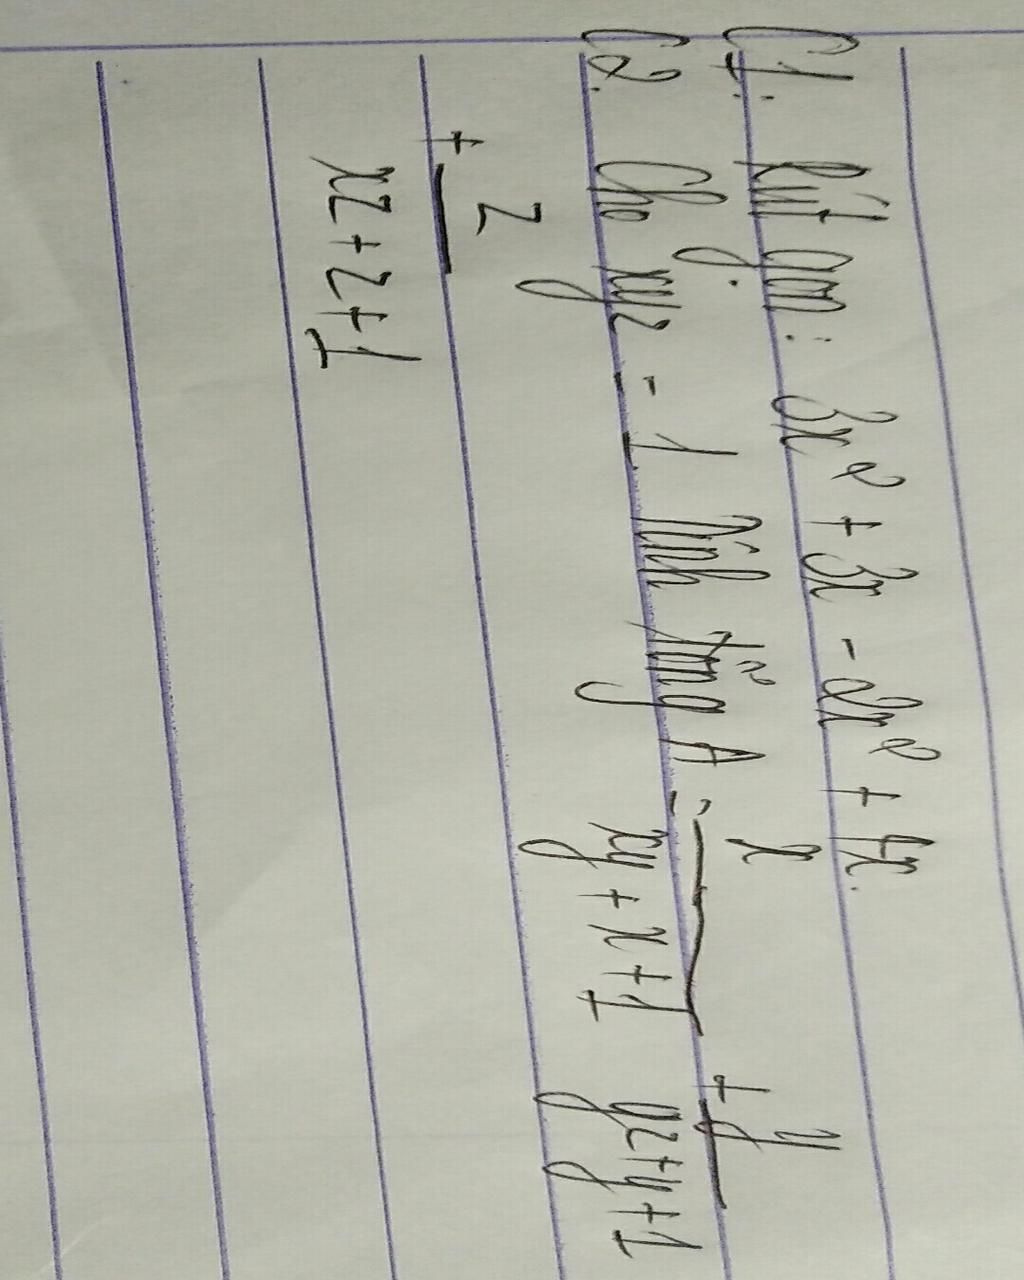 C1. Rút gọn: 3x² + 3x - 2x² + 4x.
C2. Cho xyz = 1. Tính tổng A = x/(xy + x + 1) + y/(yz + y + 1)
+ z/(xz + z + 1)